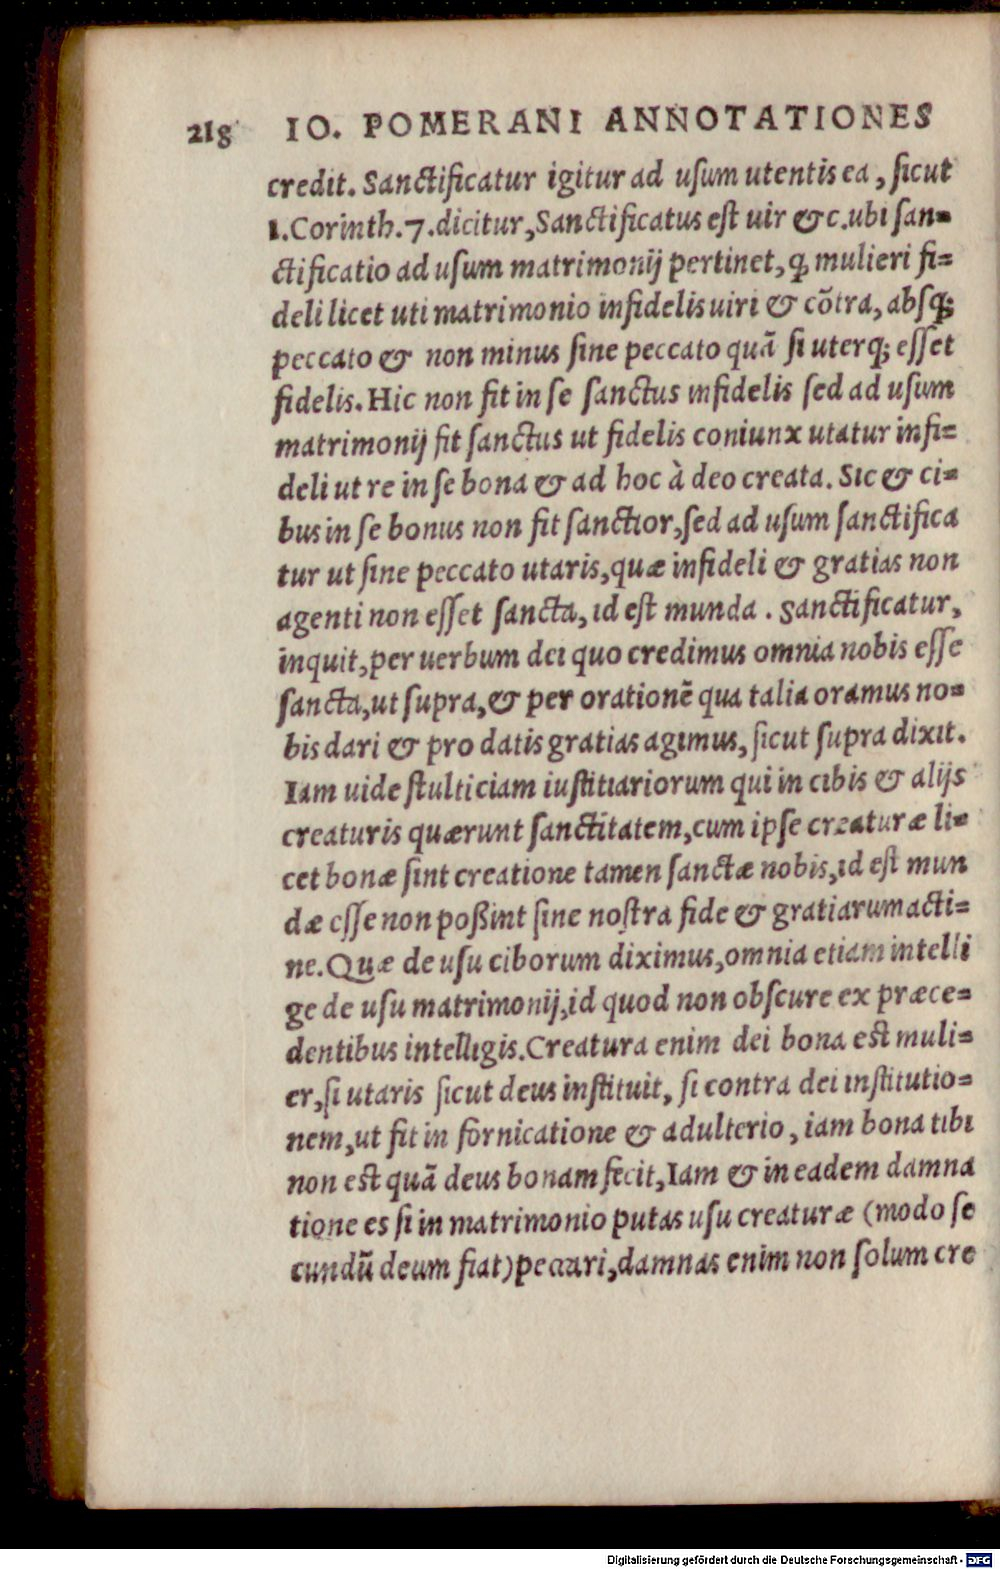 218 IO. POMERANI ANNOTATIONES
credit. Sanctificatur igitur ad usum utentis ea, sicut
1. Corinth. 7. dicitur, Sanctificatus est uir &c. ubi san=
ctificatio ad usum matrimonij pertinet, ꝙ mulieri fi=
deli licet uti matrimonio infidelis uiri & cõtra, absq;
peccato & non minus sine peccato quã si uterq; esset
fidelis. Hic non fit in se sanctus infidelis sed ad usum
matrimonij fit sanctus ut fidelis coniunx utatur infi=
deli ut re in se bona & ad hoc à deo creata. Sic & ci=
bus in se bonus non fit sanctior, sed ad usum sanctifica
tur ut sine peccato utaris, quæ infideli & gratias non
agenti non esset sancta, id est munda. Sanctificatur,
inquit, per uerbum dei quo credimus omnia nobis esse
sancta, ut supra, & per orationẽ qua talia oramus no=
bis dari & pro datis gratias agimus, sicut supra dixit.
Iam uide stulticiam iustitiariorum qui in cibis & alijs
creaturis quærunt sanctitatem, cum ipse creaturæ li=
cet bonæ sint creatione tamen sanctæ nobis, id est mun
dæ esse non poßint sine nostra fide & gratiarum acti=
ne. Quæ de usu ciborum diximus, omnia etiam intelli
ge de usu matrimonij, id quod non obscure ex præce=
dentibus intelligis. Creatura enim dei bona est muli=
er, si utaris sicut deus instituit, si contra dei institutio=
nem, ut fit in fornicatione & adulterio, iam bona tibi
non est quã deus bonam fecit, Iam & in eadem damna
tione es si in matrimonio putas usu creaturæ (modo se
cundũ deum fiat) peccari, damnas enim non solum cre
Digitalisierung gefördert durch die Deutsche Forschungsgemeinschaft - DFG